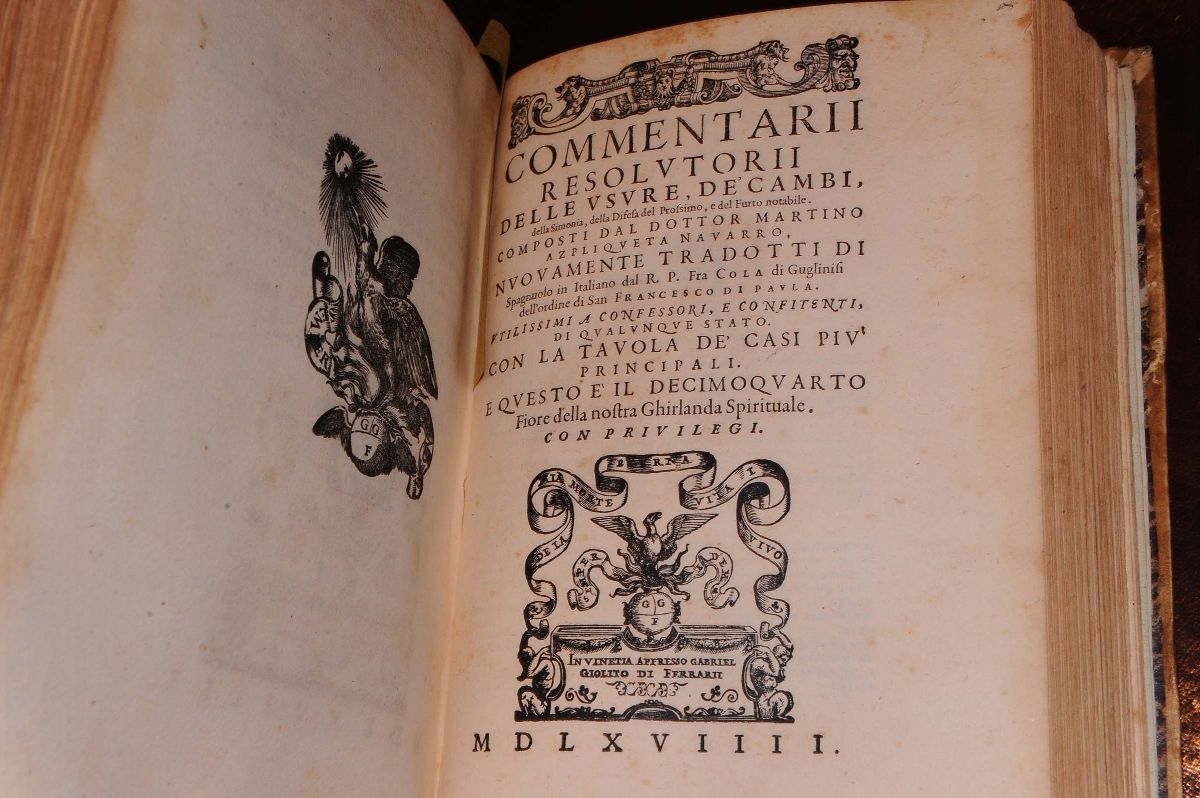 GG
F
COMMENTARII
RESOLVTORII
DELLE VSVRE, DE' CAMBI,
della Simonia, della Difeſa del Proſsimo, e del Furto notabile.
COMPOSTI DAL DOTTOR MARTINO
AZPLIQVETA NAVARRO,
NVOVAMENTE TRADOTTI DI
Spagnuolo in Italiano dal R. P. Fra COLA di Gugliniſi
dell'ordine di San FRANCESCO DI PAVLA.
VTILISSIMI A CONFESSORI, E CONFITENTI,
DI QVALVNQVE STATO.
CON LA TAVOLA DE' CASI PIV'
PRINCIPALI.
E QVESTO E' IL DECIMOQVARTO
Fiore della noſtra Ghirlanda Spirituale.
CON PRIVILEGI.
DE LA MIA MORTE ETERNA VITA I VIVO
SEMPER EADEM
GG
F
IN VINETIA APPRESSO GABRIEL
GIOLITO DI FERRARII
MDLXVIIII.